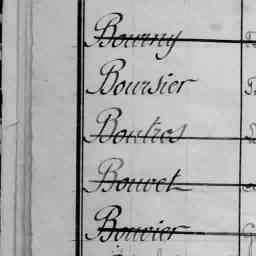 Bourny
Boursier
Boutros
Bouvet
Bouvier